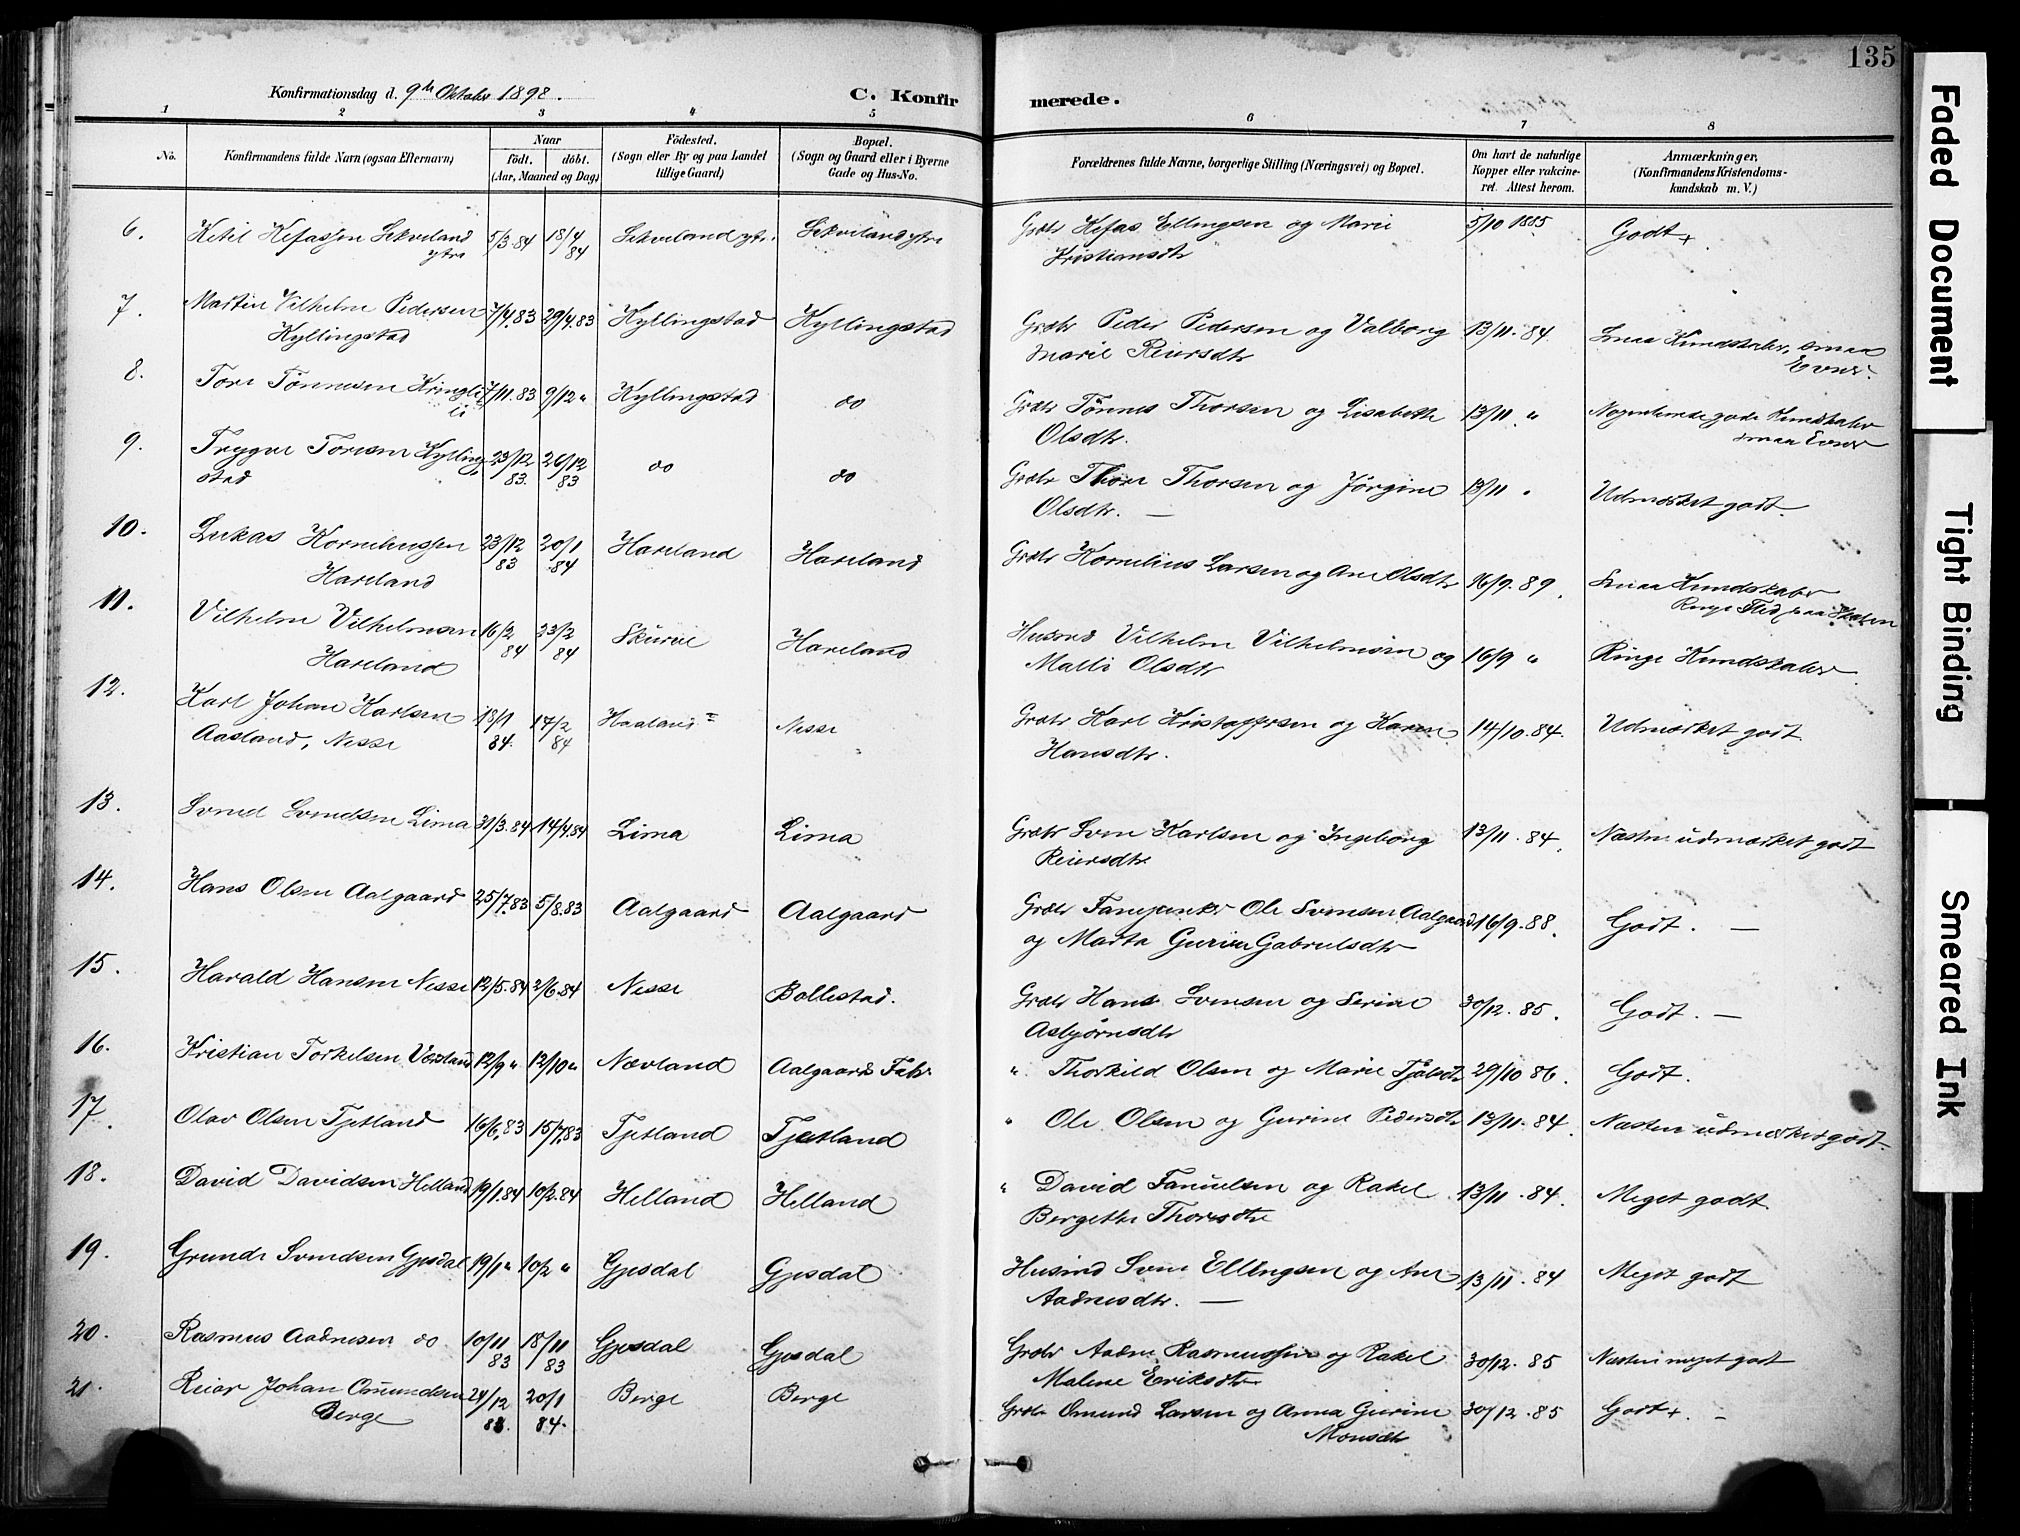 135
Konfirmationsdag d. 9de Oktober 1898.
C. Konfir
merede.
1 2 3 4 5 6 7 8
No.
Konfirmandens fulde Navn (ogsaa Efternavn)
Naar
födt. döbt.
(Aar, Maaned og Dag)
Födested.
(Sogn eller By og paa Landet
tillige Gaard)
Bopæl.
(Sogn og Gaard eller i Byerne
Gade og Hus-No.
Forældrenes fulde Navne, borgerlige Stilling (Næringsvei) og Bopæl.
Om havt de naturlige
Kopper eller vakcine-
ret. Attest herom.
Anmærkninger,
(Konfirmandens Kristendoms-
kundskab m. V.)
6. Ketil Kefassen Sekveland 5/3 84 18/4 Sekveland ytre Sekveland ytre Grbr Kefas Ellingsen og Marie 5/10 1885 Godt +.
ytre 84 Kristiansdtr
7. Martin Vilhelm Pedersen 7/4.83 29/4.83 Kyllingstad Kyllingstad Grbr Peder Pedersen og Valborg 13/11. 84. Smaa Kundskaber, smaa
Kyllingstad Marie Reiersdtr Evner.
8. Tore Tønnesen Kringle 7/11.83 9/12 " Kyllingstad do Grbr Tønnes Thorsen og Lisabeth 13/11. " Nogenlunde gode Kundskaber
li Olsdtr. smaa Evner
9. Trygve Toresen Kylling 23/12 26/12 do do Grbr Thore Thorsen og Jørgine 13/11 " Udmærket godt.
stad 83. 83 Olsdtr. —
10. Lukas Korneliussen 23/12 20/1 Haveland Haveland Grbr Kornelius Larsen og Ane Olsdtr 16/9. 89. Smaa Kundskaber
Haveland 83 84 Ringe Flid paa Skolen
11. Vilhelm Vilhelmsen 16/2 23/2 Skurve Haveland Husmd Vilhelm Vilhelmsen og 16/9 " Ringe Kundskaber.
Haveland 84 84 Malli Olsdtr
12. Karl Johan Karlsen 13/1 17/2 Haaland Nesse Grbr Karl Kristoffersen og Karen 14/10. 84. Udmærket godt
Aasland, Nesse 84. 84 Hansdtr.
13. Svend Svendsen Lima 31/3.84 14/4.84 Lima Lima Grbr Sven Karlsen og Ingeborg 13/11. 84. Næsten udmærket godt
Reiersdtr
14. Hans Olsen Aalgaard 25/7.83 5/8.83 Aalgaard Aalgaard Grbr Ole Svensen Aalgaard 16/9. 88. Godt. —
og Marta Gurine Gabrielsdtr
15. Harald Hansen Nesse 12/5.84 2/6.84 Nesse Bollestad. Grbr Hans Svensen og Serine 30/12. 85. Godt. —
Asbjørnsdtr
16. Kristian Torkelsen 12/9 " 12/10 " Nævland Aalgaards Fabr " Thorkild Olsen og Marie 29/10 86. Godt.
17. Olav Olsen Tjetland 16/6.83 15/7.83 Tjetland Tjetland " Ole Olsen og Gurine Pedersdtr 13/11. 84. Næsten udmærket godt.
18. David Davidsen Helland 19/1.84 10/2.84 Helland Helland " David Fanuelsen og Rakel 13/11. 84. Meget godt
Bergethe Thoresdtr
19. Grunde Svendsen Gjesdal 19/1 " 10/2 " Gjesdal Gjesdal Husmd Sven Ellingsen og Ane 13/11. 84 Meget godt
Aadnesdtr. —
20. Rasmus Aadnesen do 10/11 18/11 Gjesdal Gjesdal Grbr Aadne Rasmussen og Rakel 30/12. 85 Næsten meget godt
83 83 Malene Eriksdtr
21. Reiar Johan Omundsen 24/12 20/1 Berge Berge Grbr Omund Larsen og Anna Gurine 30/12. 85 Godt +. —
Berge 83. 84. Monsdtr
Faded Document
Tight Binding
Smeared Ink